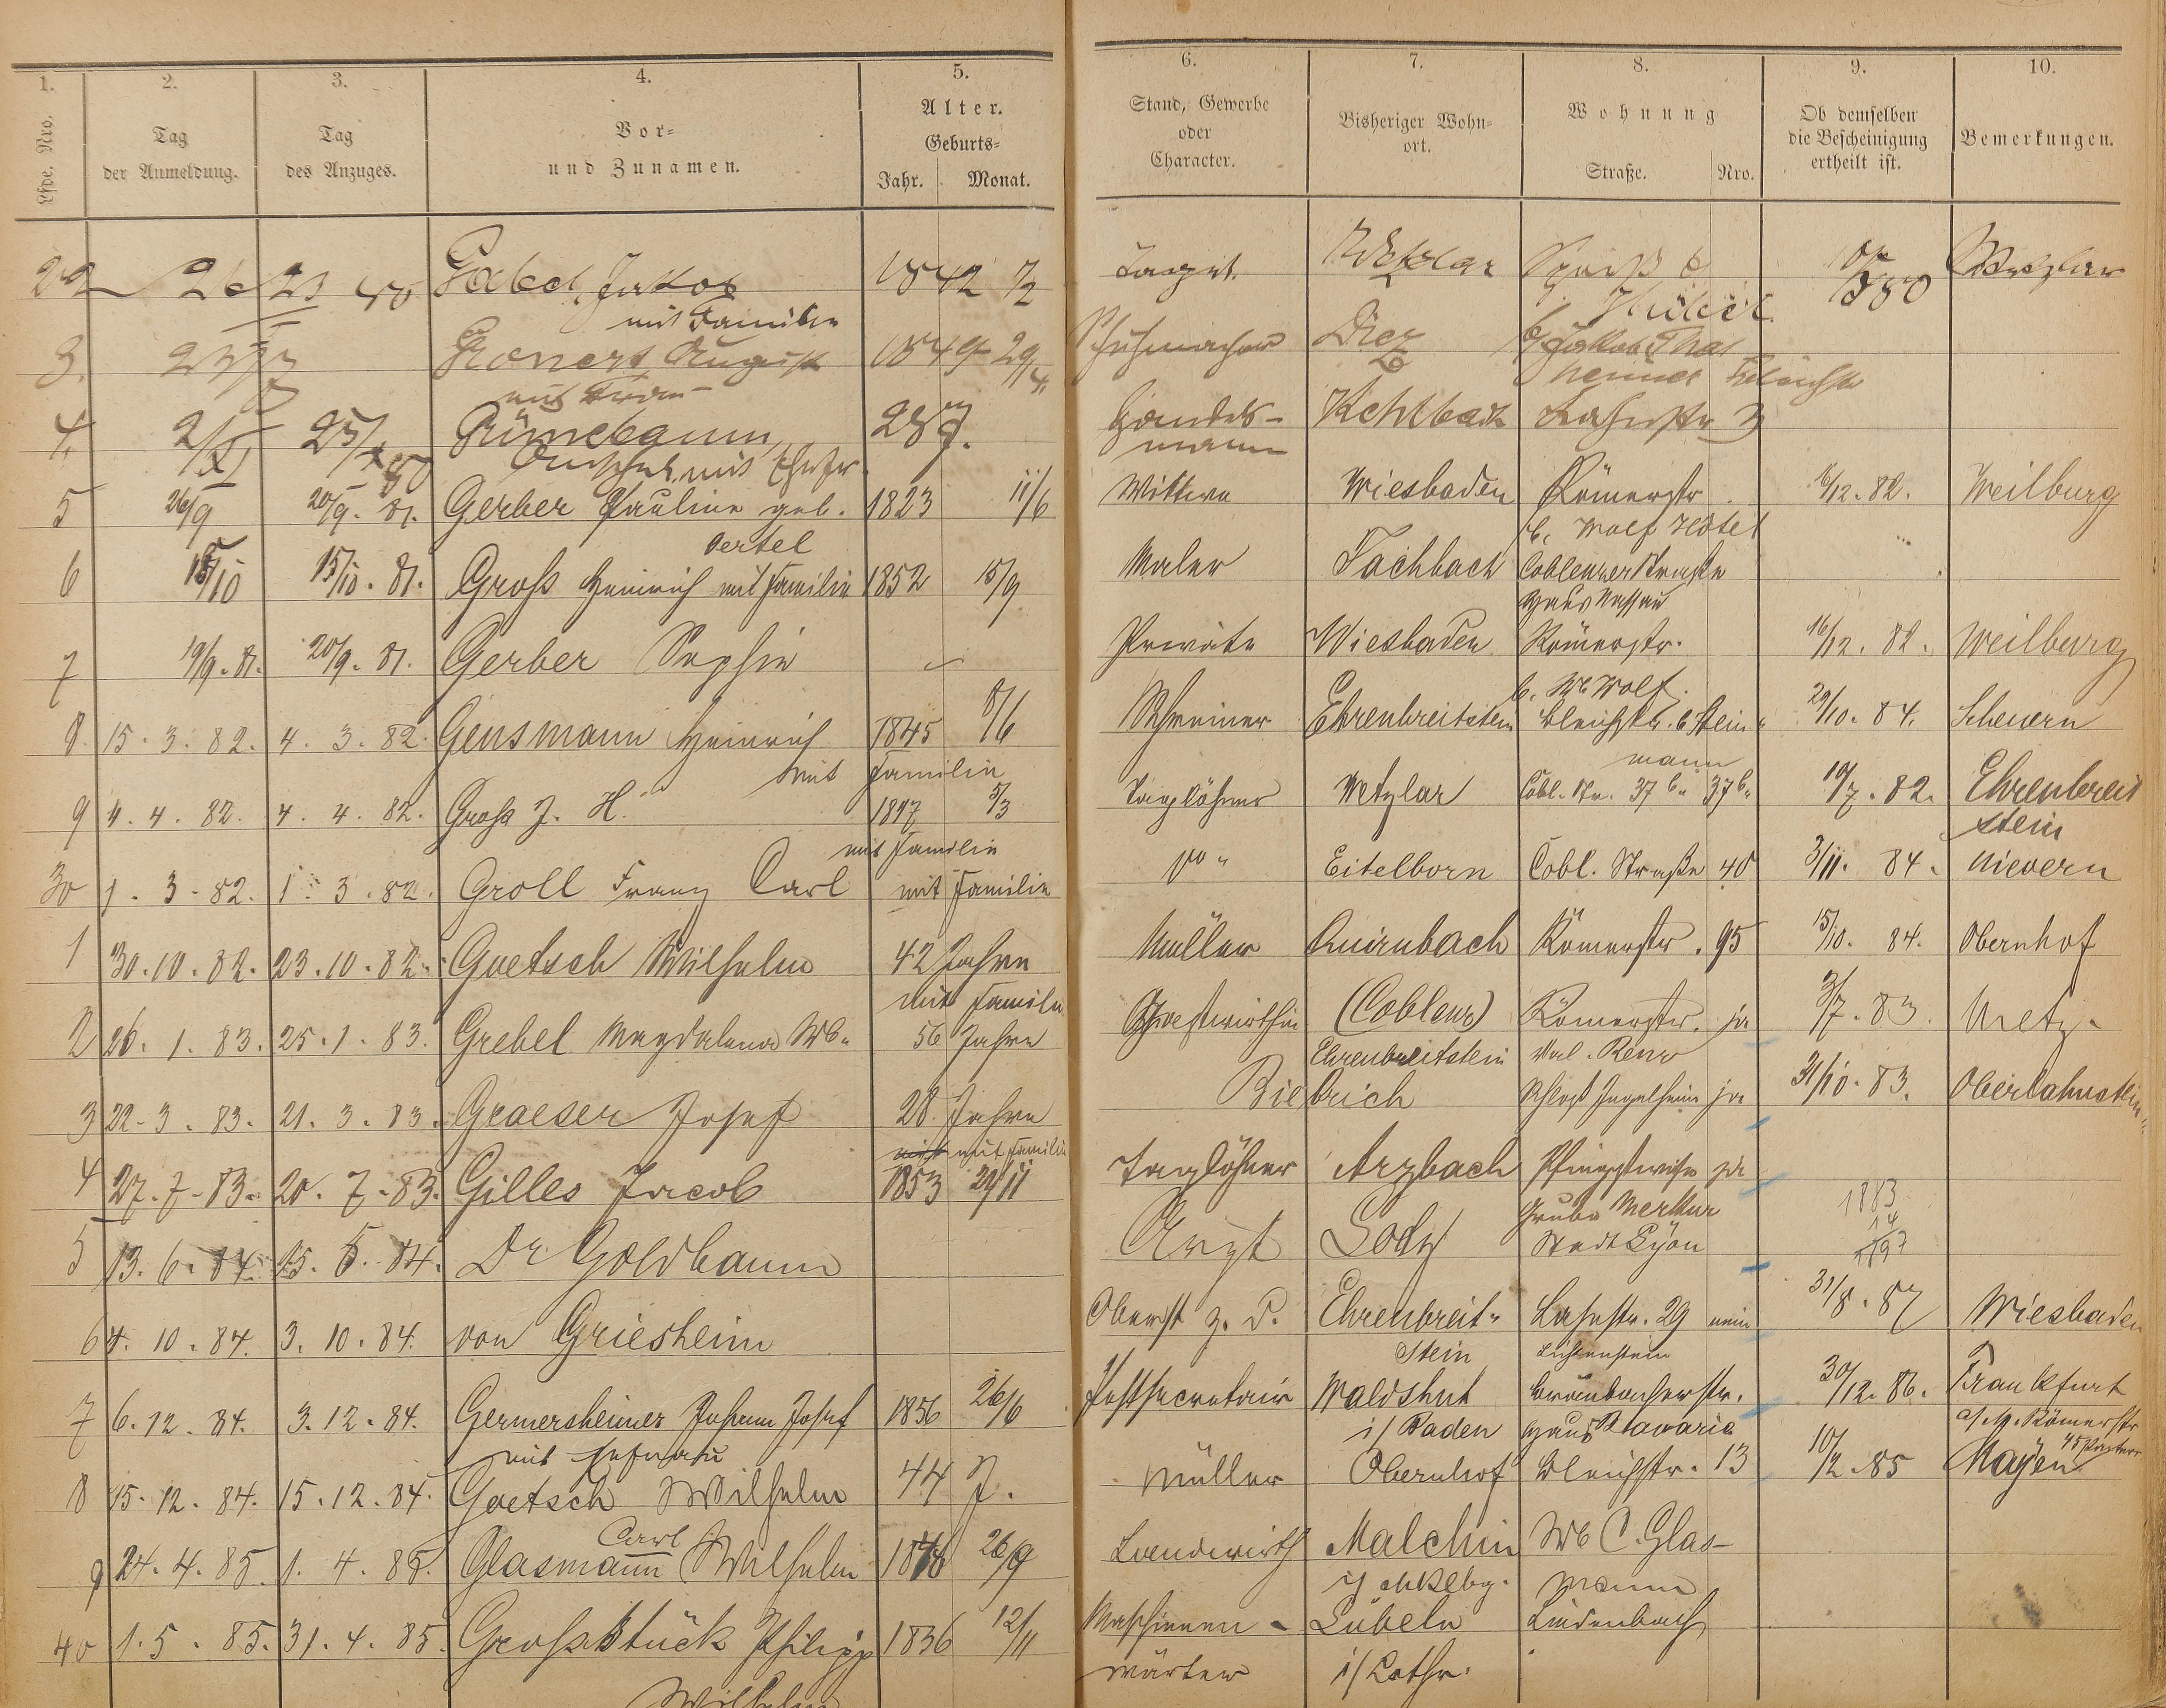 1. 2. 3. 4. 5. 6. 7. 8. 9. 10.
Lfde. Nro. Tag der Anmeldung. Tag des Anzuges. Vor- und Zunamen. Alter. Geburts- Jahr. Monat. Stand, Gewerbe oder Character. Bisheriger Wohn- ort. Wohnung Straße. Nro. Ob demselben die Bescheinigung ertheilt ist. Bemerkungen.
Gabel, Jakob 1842 Wetzlar Wetzlar
mit Familie
3. August 1849 29/4 Schuhmacher Diez
mit Frau
4. 2/XI 25/X 80 28 J. Handels- Kehlbach Lahnstr 3
mann
5 26/9 20/9. 81. Gerber Pauline geb. 1823 11/6 Wittwe Wiesbaden Römerstr. 16/12. 82. Weilburg
Oertel b. Wolf Hôtel
6 15/10 15/10. 81. Groß Heinrich mit Familie 1852 15/9 Maler Fachbach Coblenzer Straße
Haus Nassau
7 19/9. 81. 20/9. 81. Gerber Sophie Private Wiesbaden Römerstr. 16/12. 82. Weilburg
b. Ww Wolf.
8. 15. 3. 82. 4. 3. 82. Gensmann Heinrich 1845 8/6 Schreiner Ehrenbreitstein Bleichstr. b Stein- 29/10. 84. Scheuern
mit Familie mann
9 4. 4. 82. 4. 4. 82. Groß J. H. 1847 5/3 Taglöhner Wetzlar Cobl. Str. 37 b. 37 b. 10/7. 82. Ehrenbreit
mit Familie stein
30 1. 3. 82. 1. 3. 82. Groll Franz Carl mit Familie do " Eitelborn Cobl. Straße 40 3/11. 84. Nievern
1 30. 10. 82. 23. 10. 82. Goetsch Wilhelm 42 Jahre Müller Quirnbach Römerstr. 95 15/10. 84. Obernhof
mit Familie
2 26. 1. 83. 25. 1. 83. Grebel Magdalena Ww. 56 Jahre Gastwirthin (Coblenz) Römerstr. ja 3/7. 83. Metz.
Ehrenbreitstein
3 22. 3. 83. 21. 3. 83. Graeser Josef 28 Jahre Biebrich Schloß Ingelheim ja 31/10. 83. Oberlahnstein
nicht mit Familie
4 27. 7. 83. 20. 7. 83. Gilles Jacob 1853 29/11 Taglöhner Arzbach Pfingstwiese ja
Grube Merkur 1883
5 13. 6. 84. 15. 5. 84. Dr. Goldbaum Arzt Lodz Stadt Lyon
6 4. 10. 84. 3. 10. 84. von Griesheim Oberst z. D. Ehrenbreit- Lahnstr. 29 nein 31/8. 87 Wiesbaden
stein Lichtenstein
7 6. 12. 84. 3. 12. 84. Germersheimer Johann Josef 1856 26/6 Postsecretair Waldshut Graubacherstr. 30/12. 86. Frankfurt
mit Ehefrau i/ Baden Haus Bavaria a/M. Römerstr
8 15. 12. 84. 15. 12. 84. Goetsch Wilhelm 44 J. Müller Obernhof Bleichstr. 13 10/12. 85 Mayen
Carl
9 24. 4. 85. 1. 4. 85. Glasmann Wilhelm 26/9 Landwirth Malchin Ww C. Glas-
i/ Mklbg. mann
40 1. 5. 85. 31. 4. 85. Großstück Philipp 1836 12/11 Maschinen- Lübeln Lindenbach
Wilhelm wärter i/ Lothr.